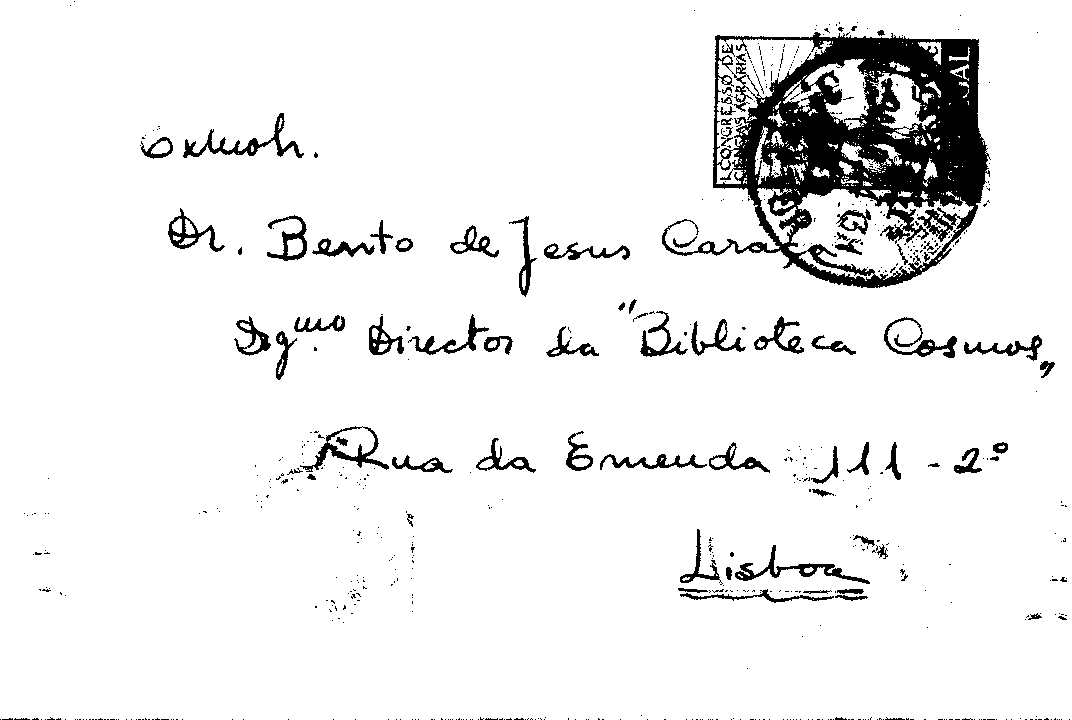 I. CONGRESSO DE
CIÊNCIAS AGRÁRIAS
Dr. Bento de Jesus Caraça
Dgmo. Director da "Biblioteca Cosmos"
Rua da Emenda 111-2º
Lisboa